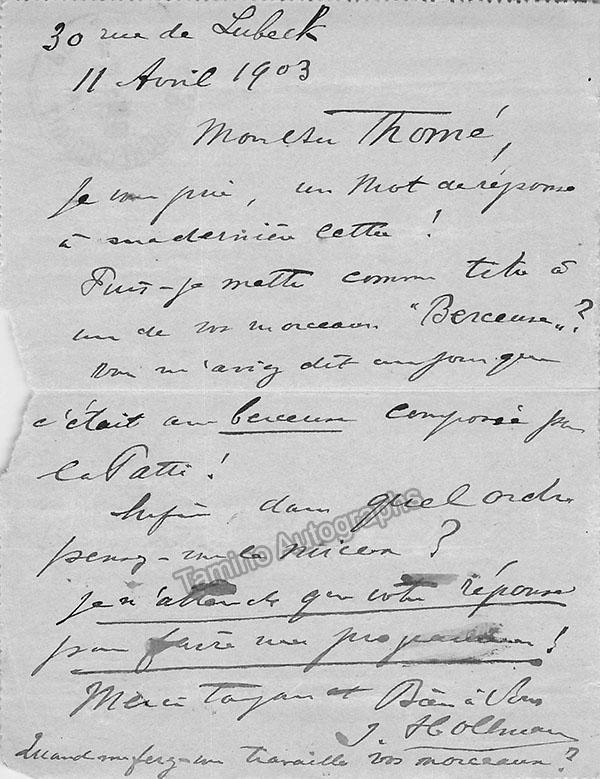 30 rue de Lubeck
11 Avril 1903
Monsieur Thomé,
Je vous prie, un Mot de réponse
à ma dernière lettre !
Puis-je mettre comme titre à
un de vos morceaux "Berceuse" ?
vous m'aviez dit un jour que
c'était une berceuse composée pour
la Patti !
Enfin, dans quel ordre
pensez-vous les mieux ?
je n'attends que votre réponse
pour faire mes programmes !
Merci toujours et Bien à Vous
J. Hollman
Quand me ferez-vous travailler vos morceaux ?
Tamino Autographs